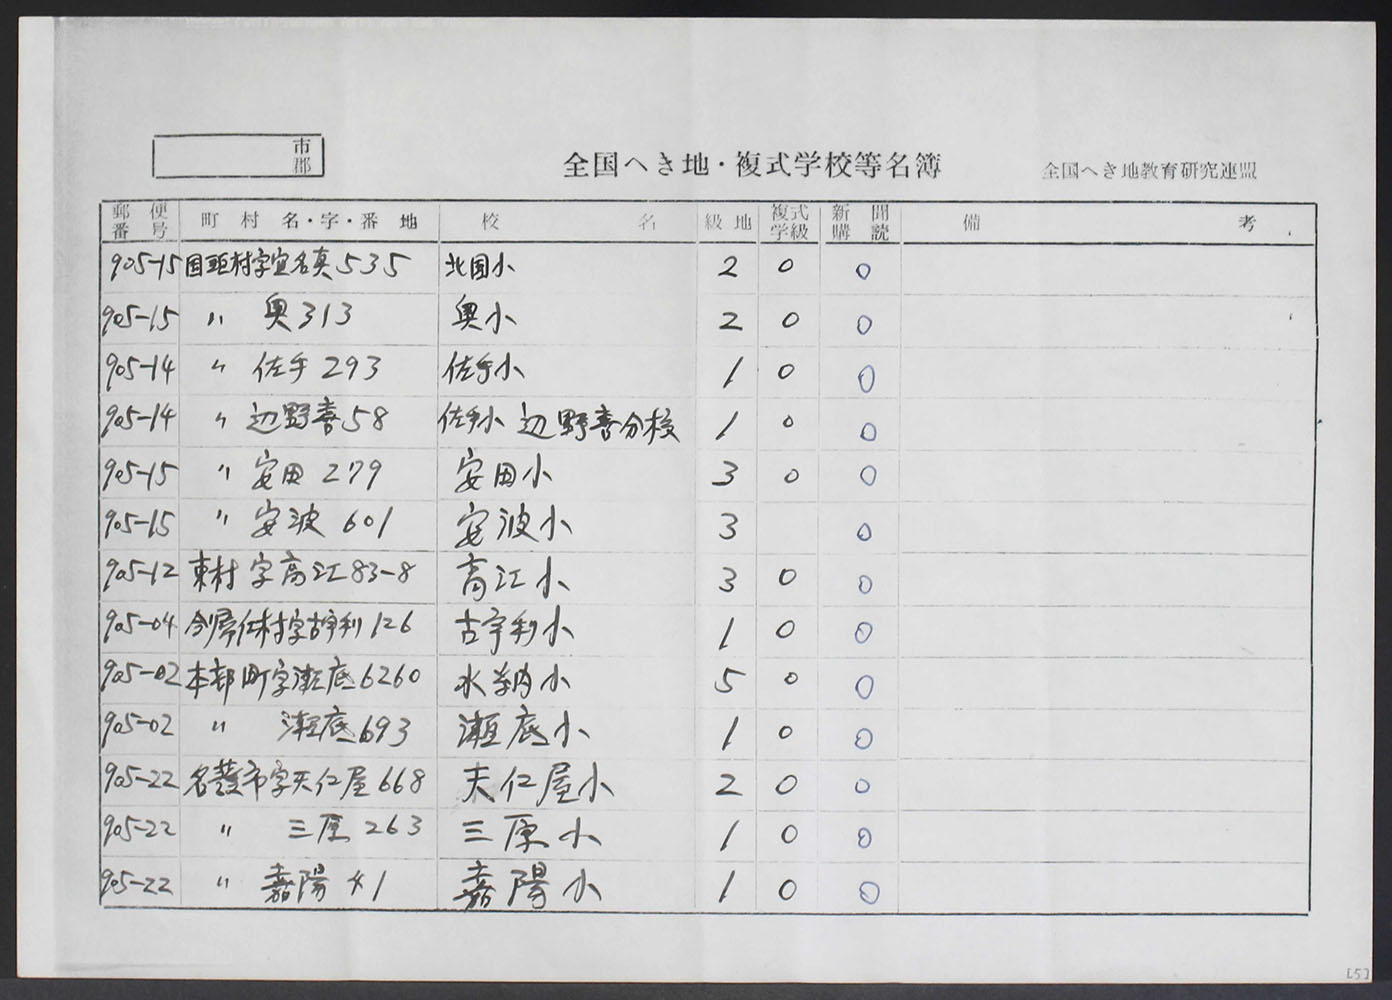 市
郡
全国へき地・複式学校等名簿
全国へき地教育研究連盟
郵便番号 町村名・字・番地 校名 級地 複式学級 新聞購読 備考
905-15 国頭村字宜名真535 北国小 2 0 0
905-15 〃 奥313 奥小 2 0 0
905-14 〃 佐手293 佐手小 1 0 0
905-14 〃 辺野喜58 佐手小 辺野喜分校 1 0 0
905-15 〃 安田279 安田小 3 0 0
905-15 〃 安波601 安波小 3 0
905-12 東村字高江83-8 高江小 3 0 0
905-04 今帰仁村字古宇利126 古宇利小 1 0 0
905-02 本部町字瀬底6260 水納小 5 0 0
905-02 〃 瀬底693 瀬底小 1 0 0
905-22 名護市字天仁屋668 天仁屋小 2 0 0
905-22 〃 三原263 三原小 1 0 0
905-22 〃 嘉陽41 嘉陽小 1 0 0
[5]